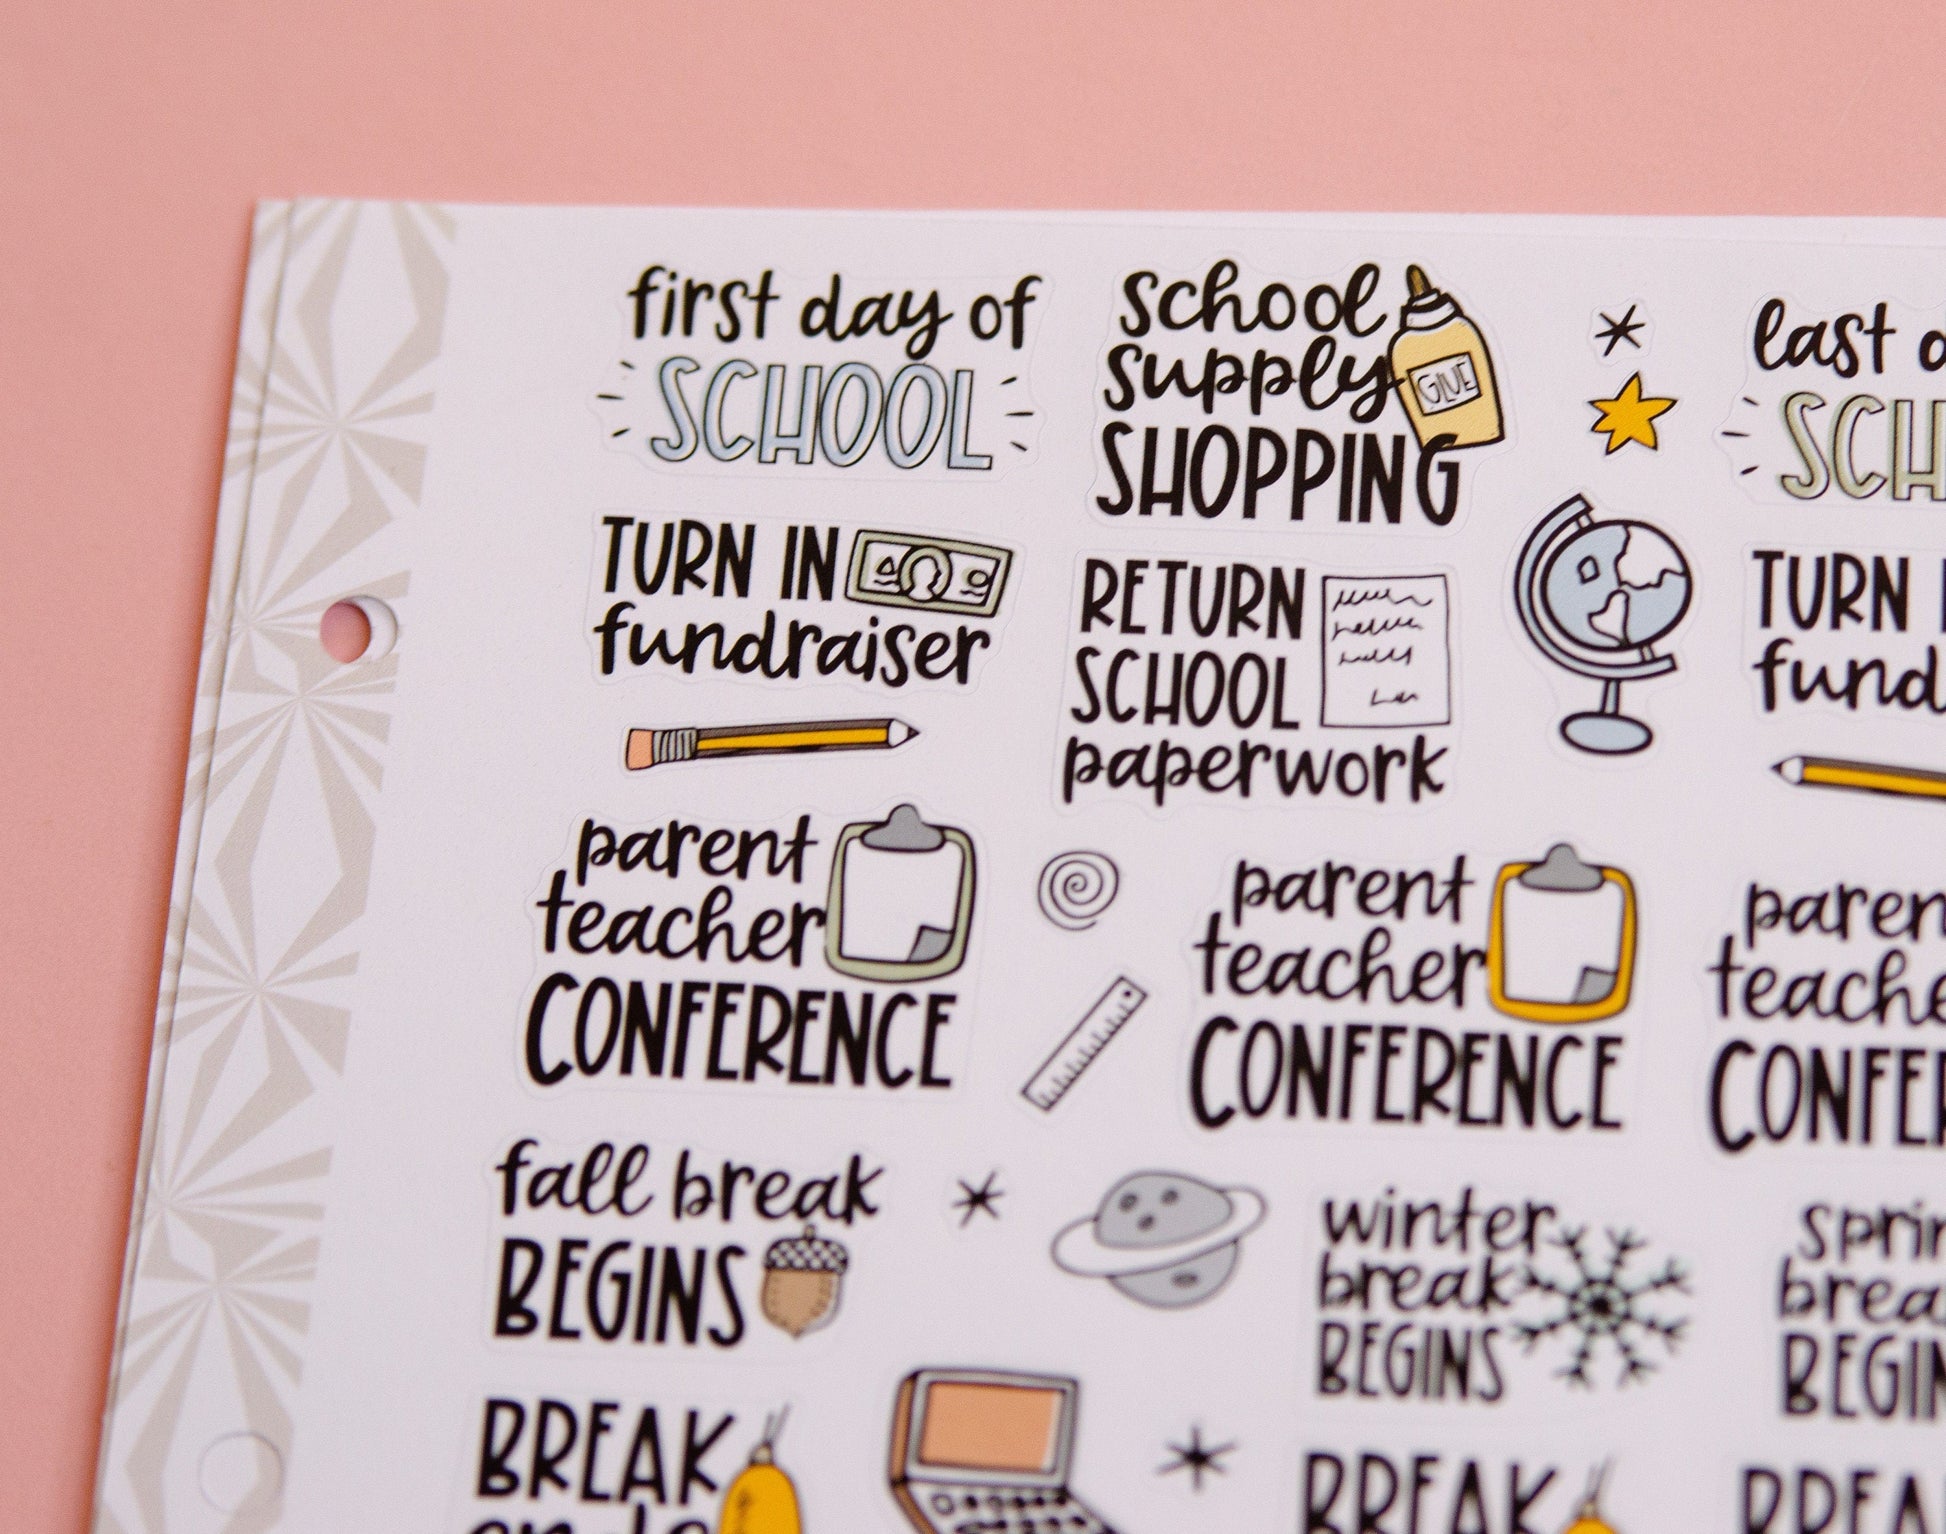 first day of
SCHOOL
school
supply
SHOPPING
GLUE
last
TURN IN
fundraiser
RETURN
SCHOOL
paperwork
TURN
parent
teacher
CONFERENCE
parent
teacher
CONFERENCE
fall break
BEGINS
winter
break
BEGINS
BREAK
BREAK